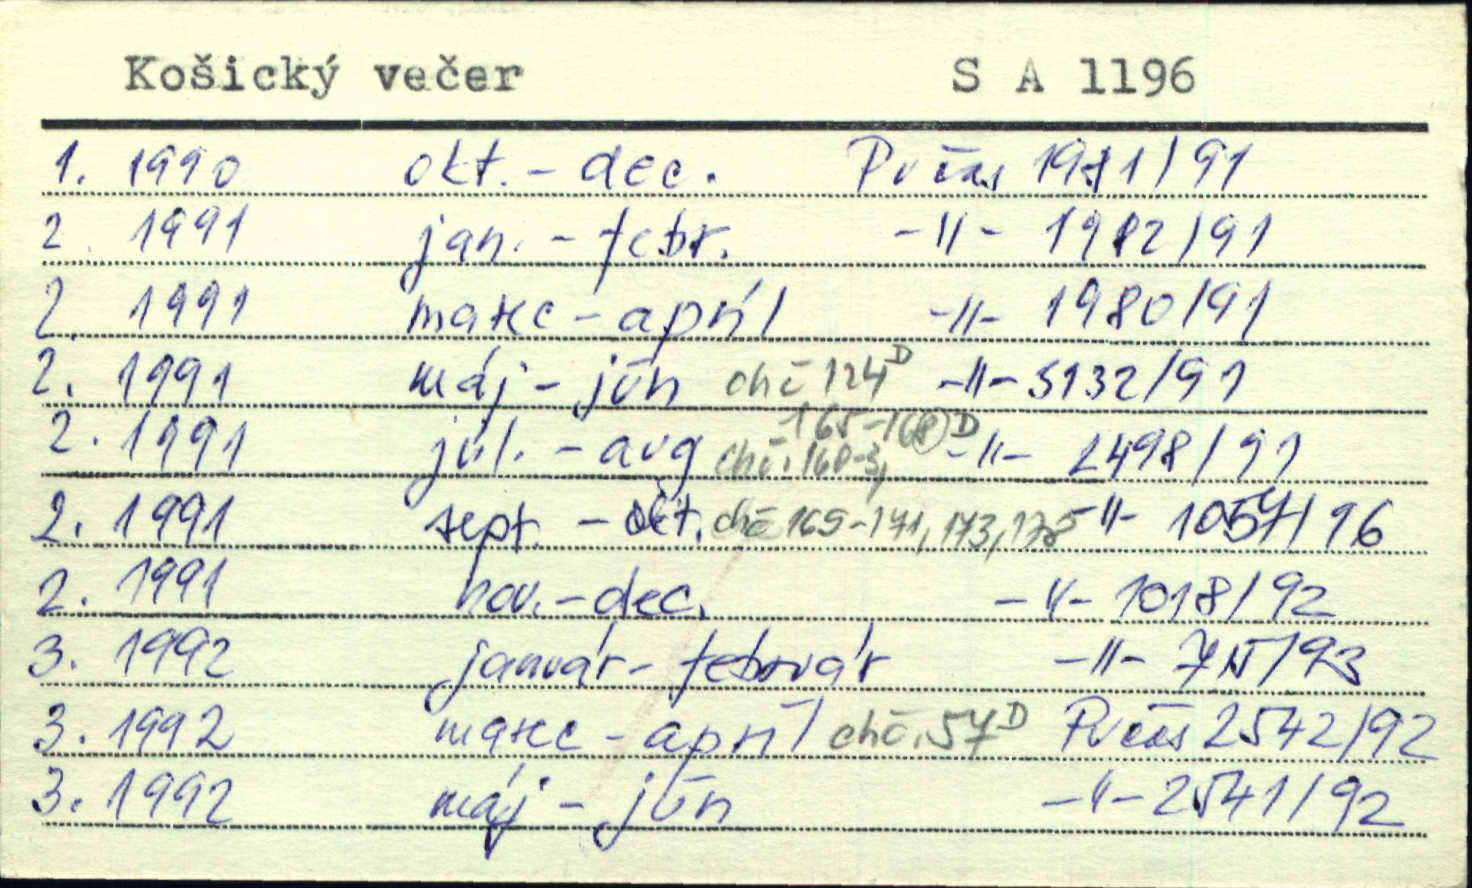 Košický večer S A 1196
1. 1990 okt. - dec. Pv čas 1981/91
2. 1991 jan. - febr. -"- 1982/91
2. 1991 marec - apríl -"- 1980/91
2. 1991 máj - jún chč 124 D -"- 3132/91
165-168 D
2. 1991 júl. - aug chč. 160-3, -"- 2498/91
2. 1991 sept. - okt. chč 169-171, 173, 178 -"- 1057/96
2. 1991 nov. - dec. -"- 1018/92
3. 1992 január - február -"- 715/93
3. 1992 marec - apríl chč. 57 D Pv čas 2542/92
3. 1992 máj - jún -"- 2541/92